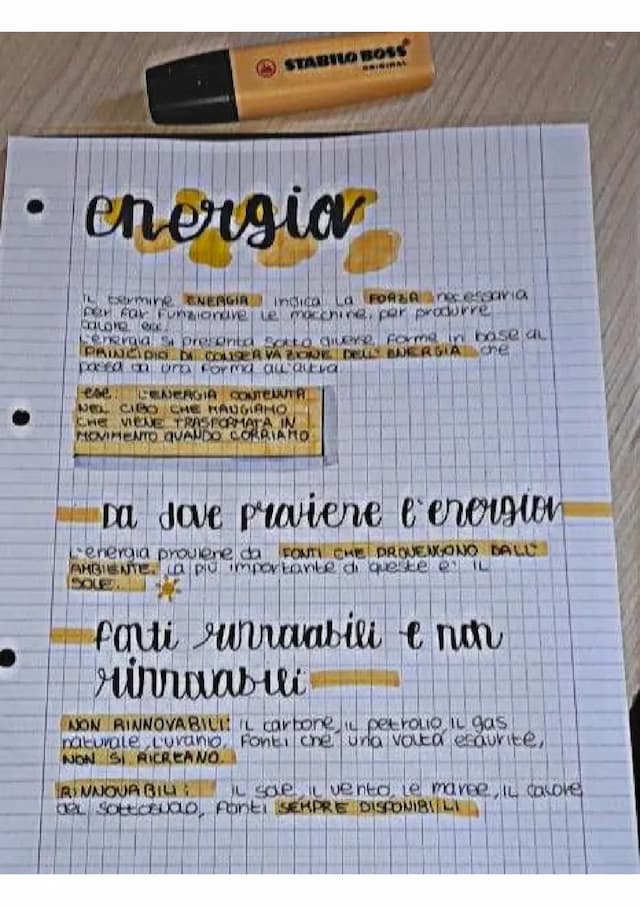 STABILO BOSS
ORIGINAL
energia
il termine ENERGIA indica la FORZA necessaria
per far funzionare le macchine, per produrre
calore ecc.
L'energia si presenta sotto diverse forme in base al
PRINCIPIO DI CONSERVAZIONE DELL'ENERGIA che
passa da una forma all'altra
ese. L'ENERGIA CONTENUTA
NEL CIBO CHE MANGIAMO
CHE VIENE TRASFORMATA IN
MOVIMENTO QUANDO CORRIAMO
Da dove proviene l'energia
L'energia proviene da FONTI CHE PROVENGONO DALL'
AMBIENTE. La più importante di queste è il
SOLE.
fonti rinnovabili e non
rinnovabili
NON RINNOVABILI: il carbone, il petrolio il gas
naturale, l'uranio. Fonti che una volta esaurite,
NON SI RICREANO.
RINNOVABILI: il sole, il vento, le maree, il calore
del sottosuolo, fonti SEMPRE DISPONIBILI